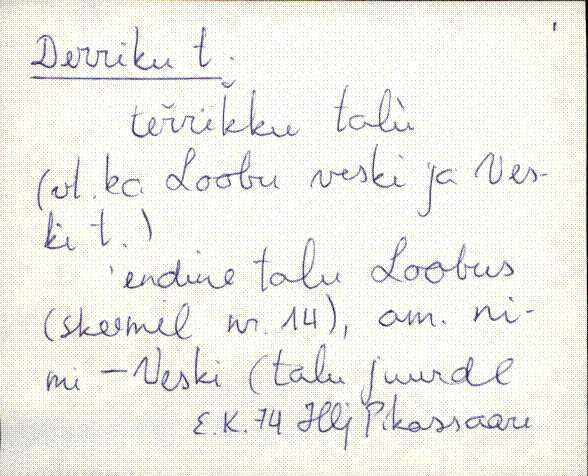 Derriku t.
tèřřĭkku talù
(vt. ka Loobu veski ja Ves-
ki t.)
'endine talu Loobus
(skeemil nr. 14), am. ni-
mi - Veski (talu juurde
E.K. 74 Hlj P.Kassaare